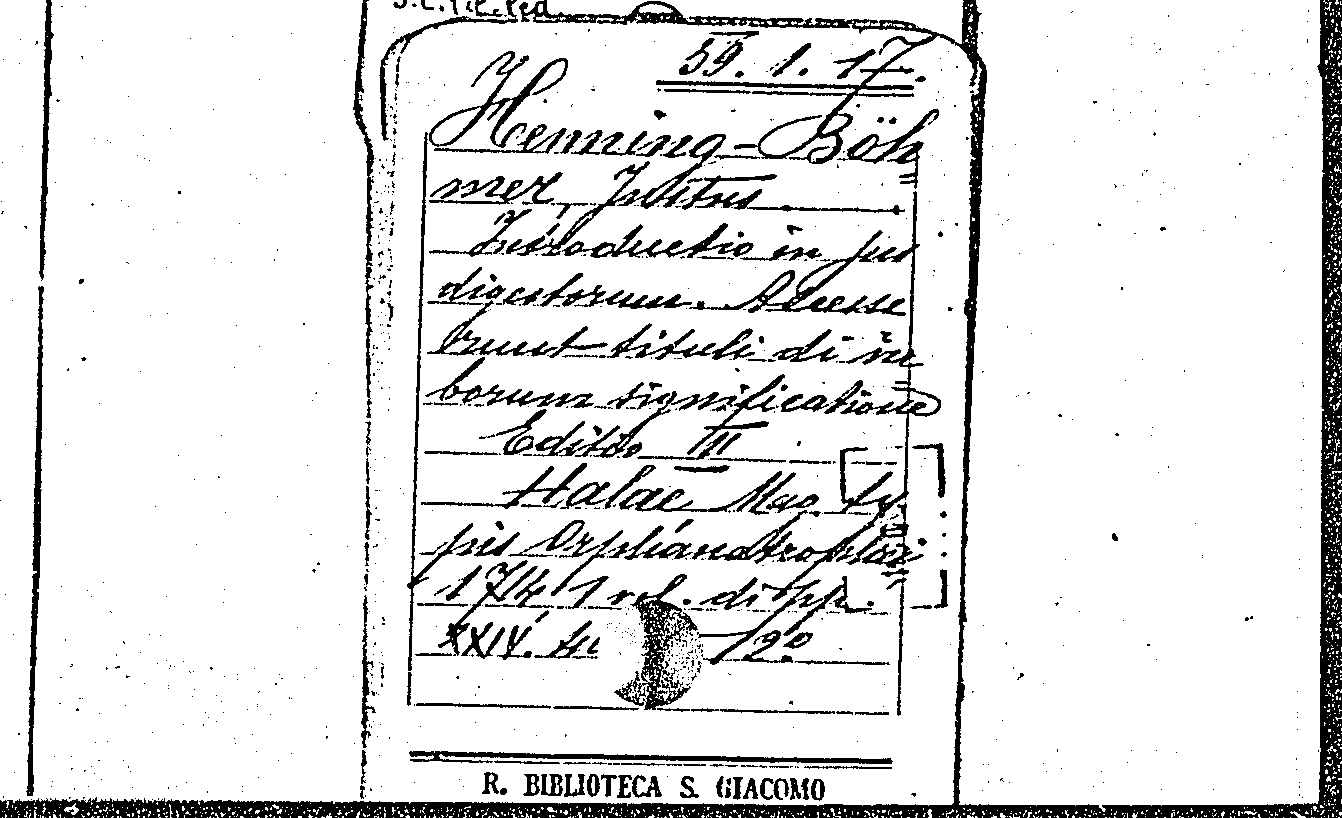 59. 1. 17.
Henning-Böh
mer, Justus.
Introductio in jus
digestorum. Accesse
runt tituli di ver
borum significatione
Editio III
Halae Mag. Ty
pis Orphanotrophii.
1741 vol. di pp.
XXIV. 12°
R. BIBLIOTECA S. GIACOMO